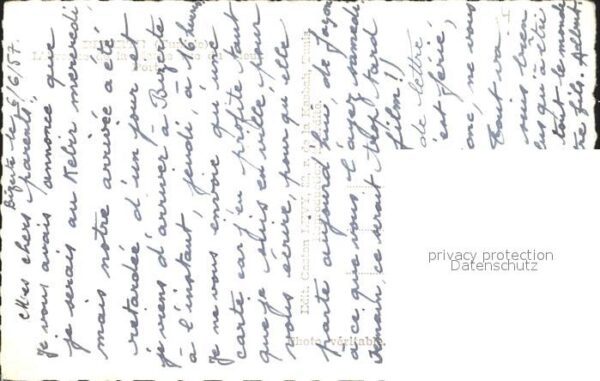 Bizerte le 6/6/57.
Mes chers parents,
je vous avais annoncé que
je serais au Kebir mercredi
mais notre arrivée a été
retardée d'un jour et
je viens d'arriver à Bizerte
à l'instant, jeudi, à 16 heures
je ne vous envoie qu'une
carte car j'en profite tant
que je suis en ville pour
vous écrire, pour qu'elle
parte aujourd'hui, de façon
à ce que vous l'ayez samedi
demain, ce serait trop tard
film!
de lettre
est férié,
donc, ne vous
Tout va
suis bien
qu'a été
tout le monde
votre fils. Albert
Photo véritable.
privacy protection
Datenschutz